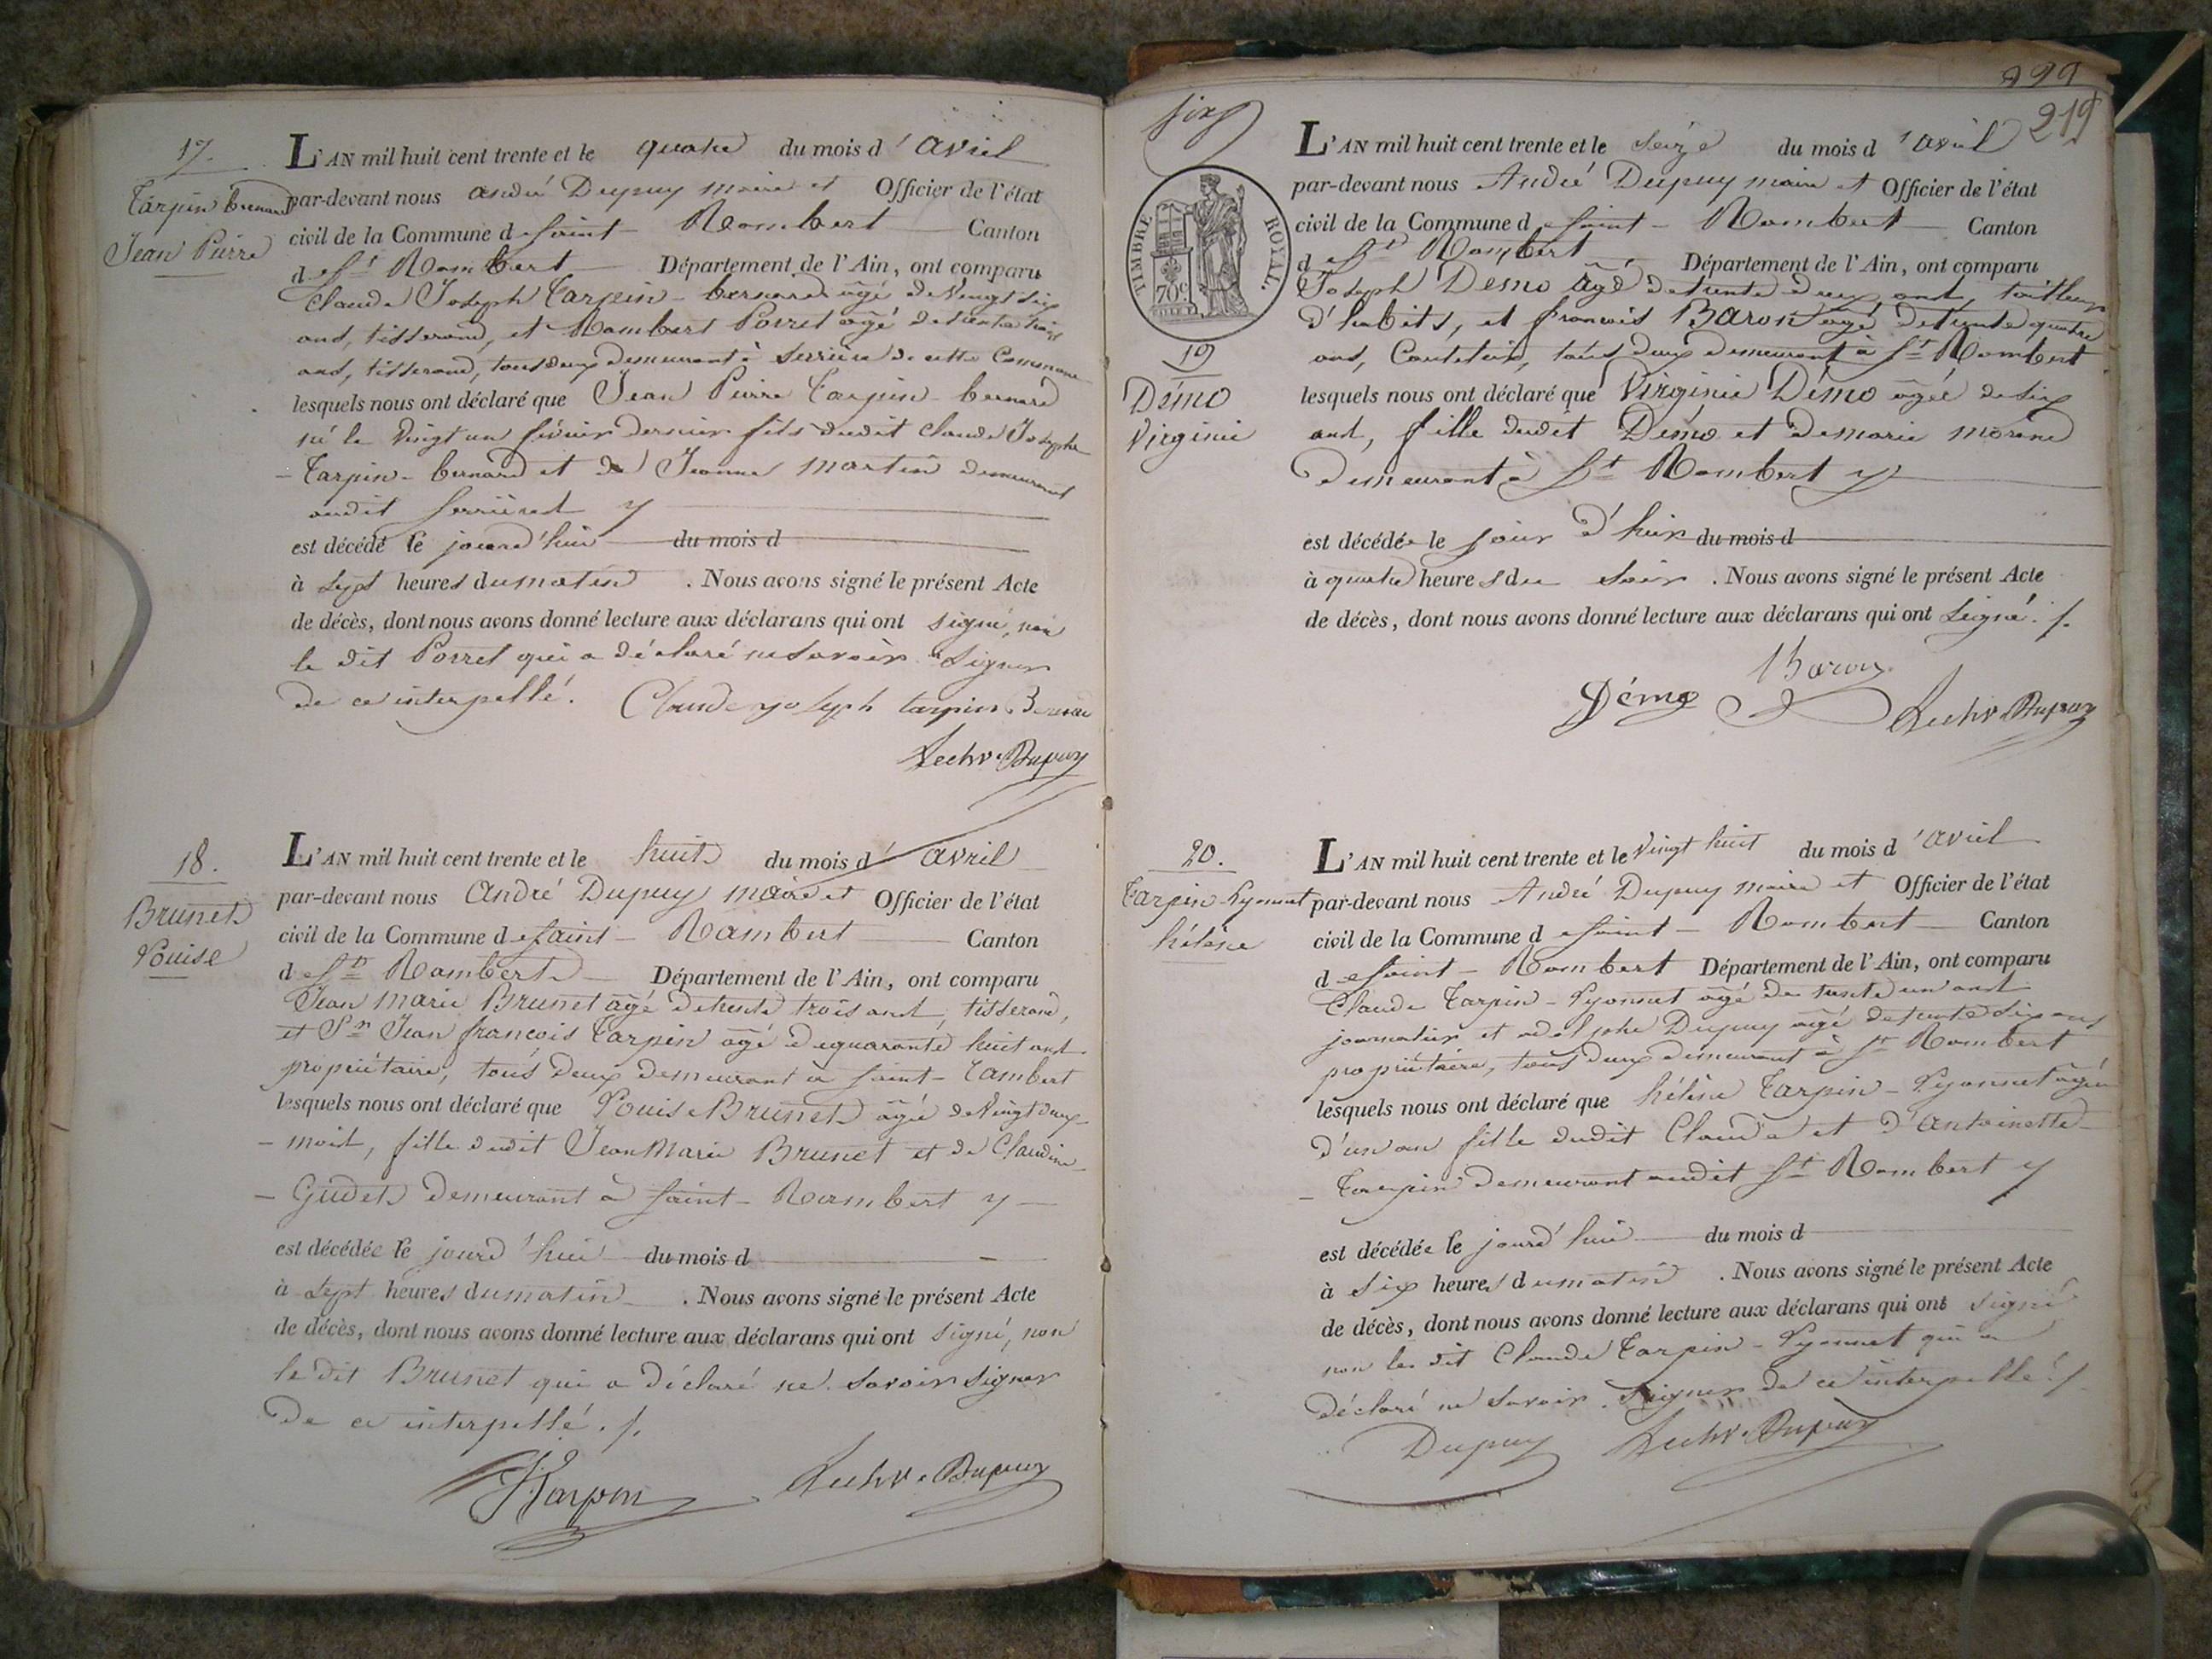 17.
Tarpin bernard
Jean Pierre
L'AN mil huit cent trente et le quatre du mois d'avril
par-devant nous andré Dupuy maire et Officier de l'état
civil de la Commune de Saint-Rambert Canton
de St Rambert Département de l'Ain, ont comparu
Claude Joseph Tarpin-bernard âgé de Vingt six
ans, tisserand, et Rambert Porret âgé de trente trois
ans, tisserand, tous deux demeurant à Serrière de cette Commune
lesquels nous ont déclaré que Jean Pierre Tarpin-bernard
né le Vingt un février dernier fils dudit Claude Joseph
Tarpin-bernard et de Jeanne Martin demeurant
audit Serrières
est décédé le jourd'hui du mois d
à sept heures du matin. Nous avons signé le présent Acte
de décès, dont nous avons donné lecture aux déclarans qui ont signé, non
le dit Porret qui a déclaré ne savoir signer
de ce interpellé. Claude joseph tarpin Bernard
Dupuy
18.
Brunet
Louise
L'AN mil huit cent trente et le huit du mois d'avril
par-devant nous André Dupuy maire et Officier de l'état
civil de la Commune de Saint-Rambert Canton
de St Rambert Département de l'Ain, ont comparu
Jean Marie Brunet âgé de trente trois ans, tisserand,
et Sr Jean françois Tarpin âgé de quarante huit ans
propriétaire, tous deux demeurant à Saint-Rambert
lesquels nous ont déclaré que Louise Brunet âgée de Vingt deux
mois, fille dudit Jean Marie Brunet et de Claudine
Gudet demeurant à Saint-Rambert
est décédée le jourd'hui du mois d
à sept heures du matin. Nous avons signé le présent Acte
de décès, dont nous avons donné lecture aux déclarans qui ont signé, non
le dit Brunet qui a déclaré ne savoir signer
de ce interpellé./.
Tarpin Dupuy
299
219
six
TIMBRE ROYAL
70c
19
Démo
Virginie
L'AN mil huit cent trente et le seize du mois d'avril
par-devant nous André Dupuy maire et Officier de l'état
civil de la Commune de Saint-Rambert Canton
de St Rambert Département de l'Ain, ont comparu
Joseph Demo âgé de trente deux ans, tailleur
d'habits, et françois Baron âgé de trente quatre
ans, Coutelier, tous deux demeurant à St Rambert
lesquels nous ont déclaré que Virginie Démo âgée de six
ans, fille dudit Démo et de marie morand
demeurant à St Rambert
est décédée le jour d'hui du mois d
à quatre heures du soir. Nous avons signé le présent Acte
de décès, dont nous avons donné lecture aux déclarans qui ont signé./.
Baron
Démo Dupuy
20.
Tarpin-Lyonnet
hélène
L'AN mil huit cent trente et le Vingt huit du mois d'avril
par-devant nous André Dupuy maire et Officier de l'état
civil de la Commune de Saint-Rambert Canton
de Saint-Rambert Département de l'Ain, ont comparu
Claude Tarpin-Lyonnet âgé de trente un ans
journalier et adolphe Dupuy âgé de trente six ans
propriétaire, tous deux demeurant à St Rambert
lesquels nous ont déclaré que hélène Tarpin-Lyonnet âgée
d'un an fille dudit Claude et d'Antoinette
Tarpin demeurant audit St Rambert
est décédée le jourd'hui du mois d
à six heures du matin. Nous avons signé le présent Acte
de décès, dont nous avons donné lecture aux déclarans qui ont signé
non le dit Claude Tarpin-Lyonnet qui a
déclaré ne savoir signer de ce interpellé./.
Dupuy Dupuy